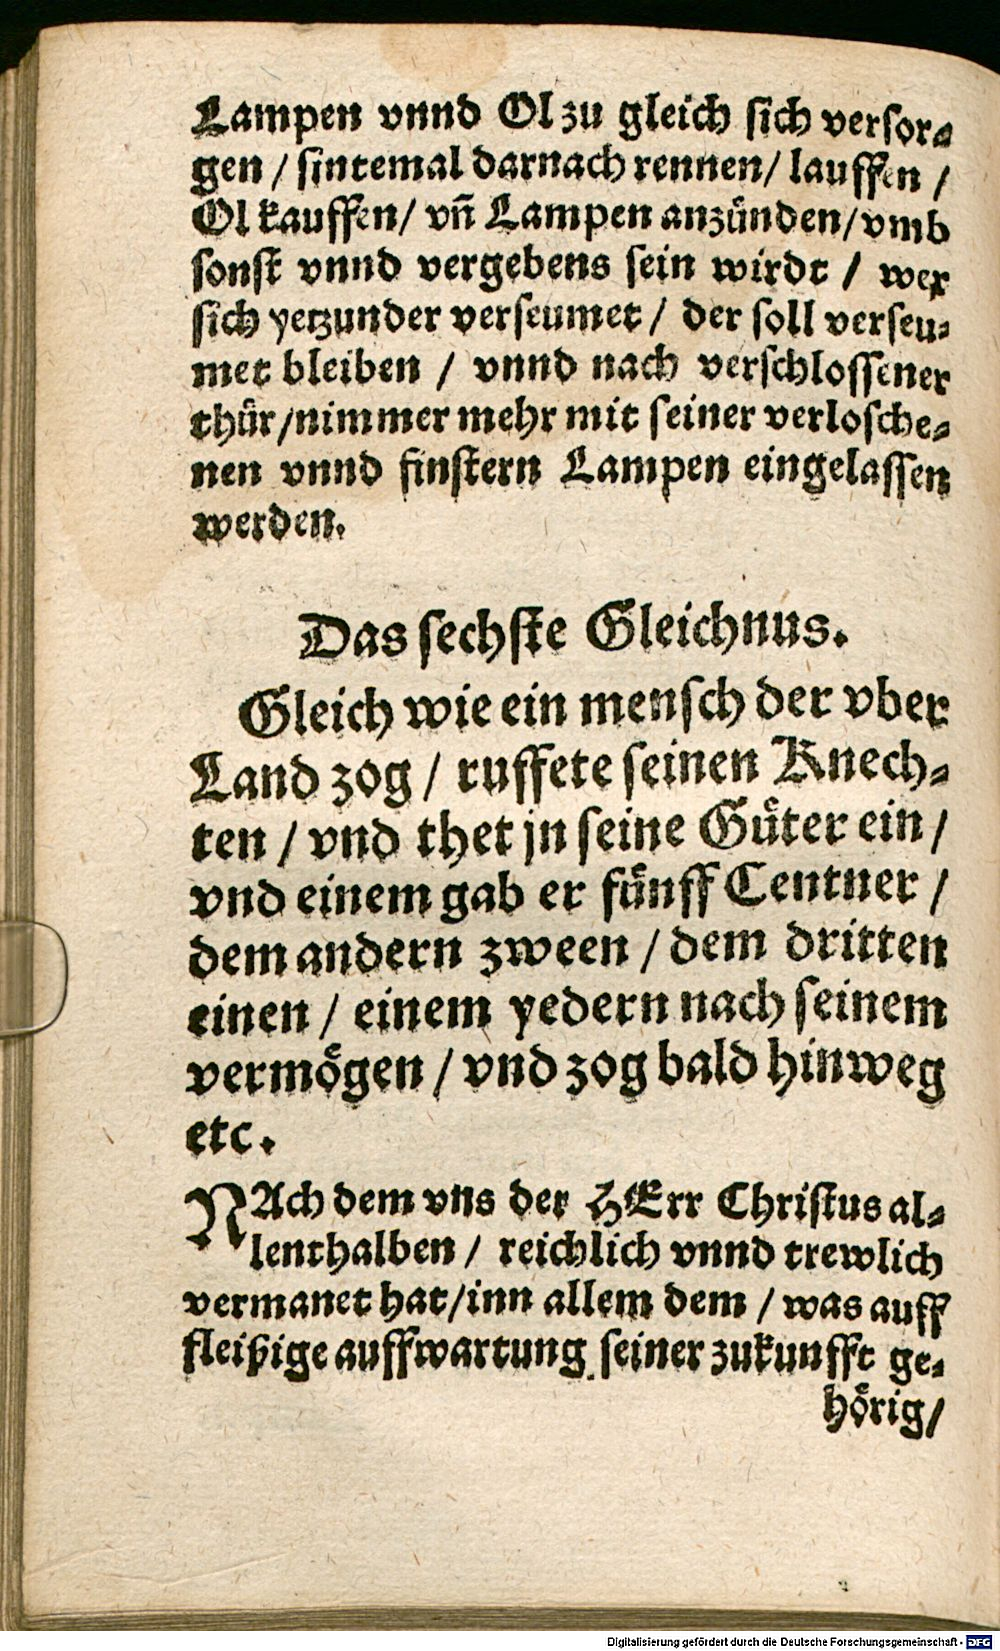 Lampen vnnd Ol zu gleich sich versor⸗
gen / sintemal darnach rennen / lauffen /
Ol kauffen / vñ Lampen anzünden / vmb
sonst vnnd vergebens sein wirdt / wer
sich yetzunder verseumet / der soll verseu⸗
met bleiben / vnnd nach verschlossener
thür / nimmer mehr mit seiner verlosche⸗
nen vnnd finstern Lampen eingelassen
werden.
Das sechste Gleichnus.
Gleich wie ein mensch der vber
Land zog / ruffete seinen Knech⸗
ten / vnd thet jn seine Güter ein /
vnd einem gab er fünff Centner /
dem andern zween / dem dritten
einen / einem yedern nach seinem
vermögen / vnd zog bald hinweg
etc.
NAch dem vns der HErr Christus al⸗
lenthalben / reichlich vnnd trewlich
vermanet hat / inn allem dem / was auff
fleißige auffwartung seiner zukunfft ge⸗
hörig /
Digitalisierung gefördert durch die Deutsche Forschungsgemeinschaft - DFG